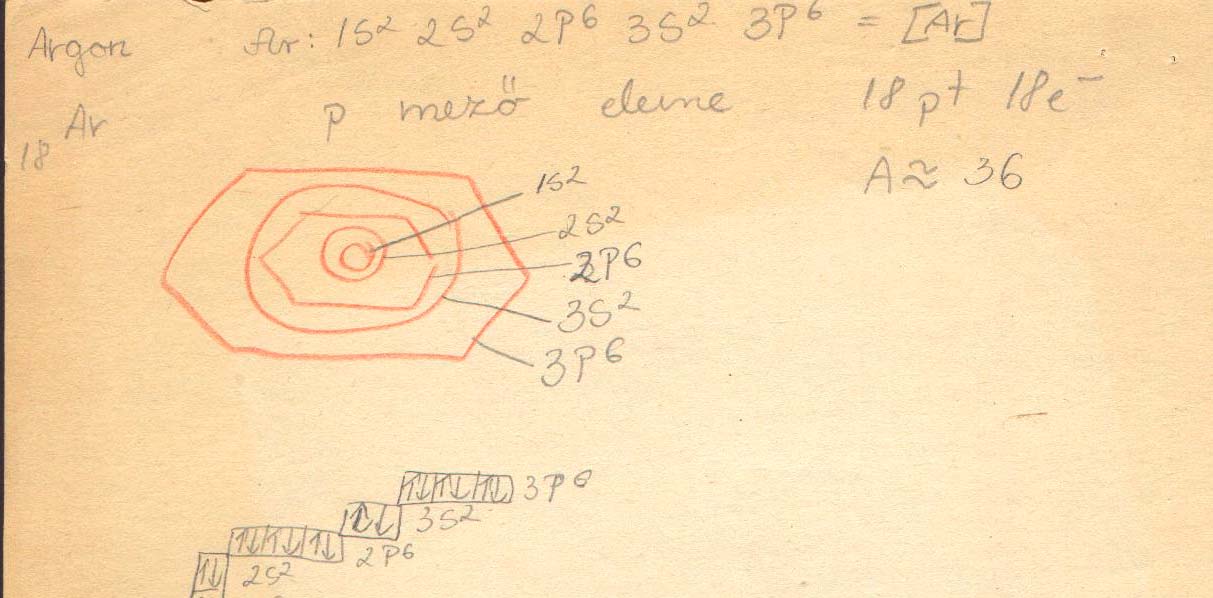 Argon Ar: 1S² 2S² 2P⁶ 3S² 3P⁶ = [Ar]
₁₈Ar p mező eleme 18p⁺ 18e⁻
A ≈ 36
1S²
2S²
2P⁶
3S²
3P⁶
↑↓ ↑↓ ↑↓ 3P⁶
↑↓ 3S²
↑↓ ↑↓ ↑↓ 2P⁶
↑↓ 2S²